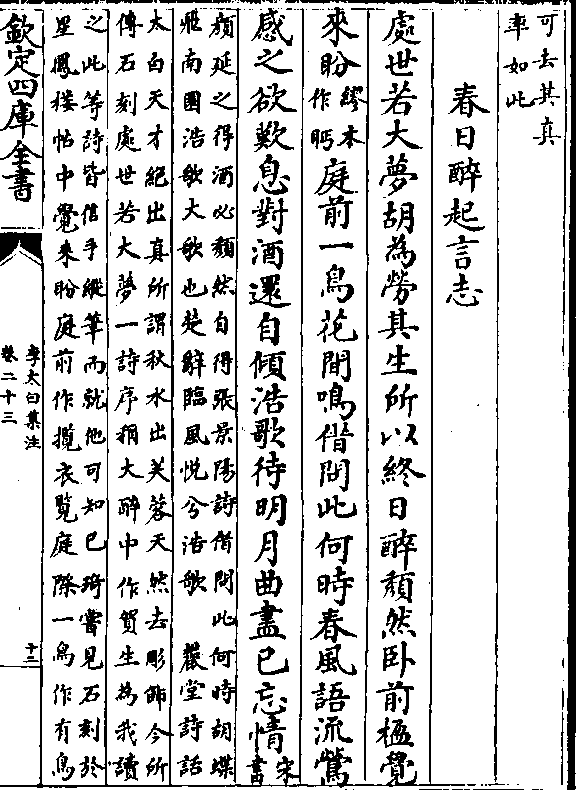 可去其真
率如此
春日醉起言志
處世若大夢胡為勞其生所以終日醉頹然卧前楹覺
來盼繆本作眄庭前一鳥花間鳴借問此何時春風語流鶯
感之欲歎息對酒還自傾浩歌待明月曲盡已忘情宋書
顔延之得酒必頹然自得張景陽詩借問此何時胡蝶
飛南園浩歌大歌也楚辭臨風怳兮浩歌 麓堂詩話
太白天才絶出真所謂秋水出芙蓉天然去彫飾今所
傳石刻處世若大夢一詩序稱大醉中作賀生為我讀
之此等詩皆信手縱筆而就他可知已琦嘗見石刻於
星鳳樓帖中覺來盼庭前作攬衣覽庭際一鳥作有鳥
欽定四庫全書
李太白集注
卷二十三
十二